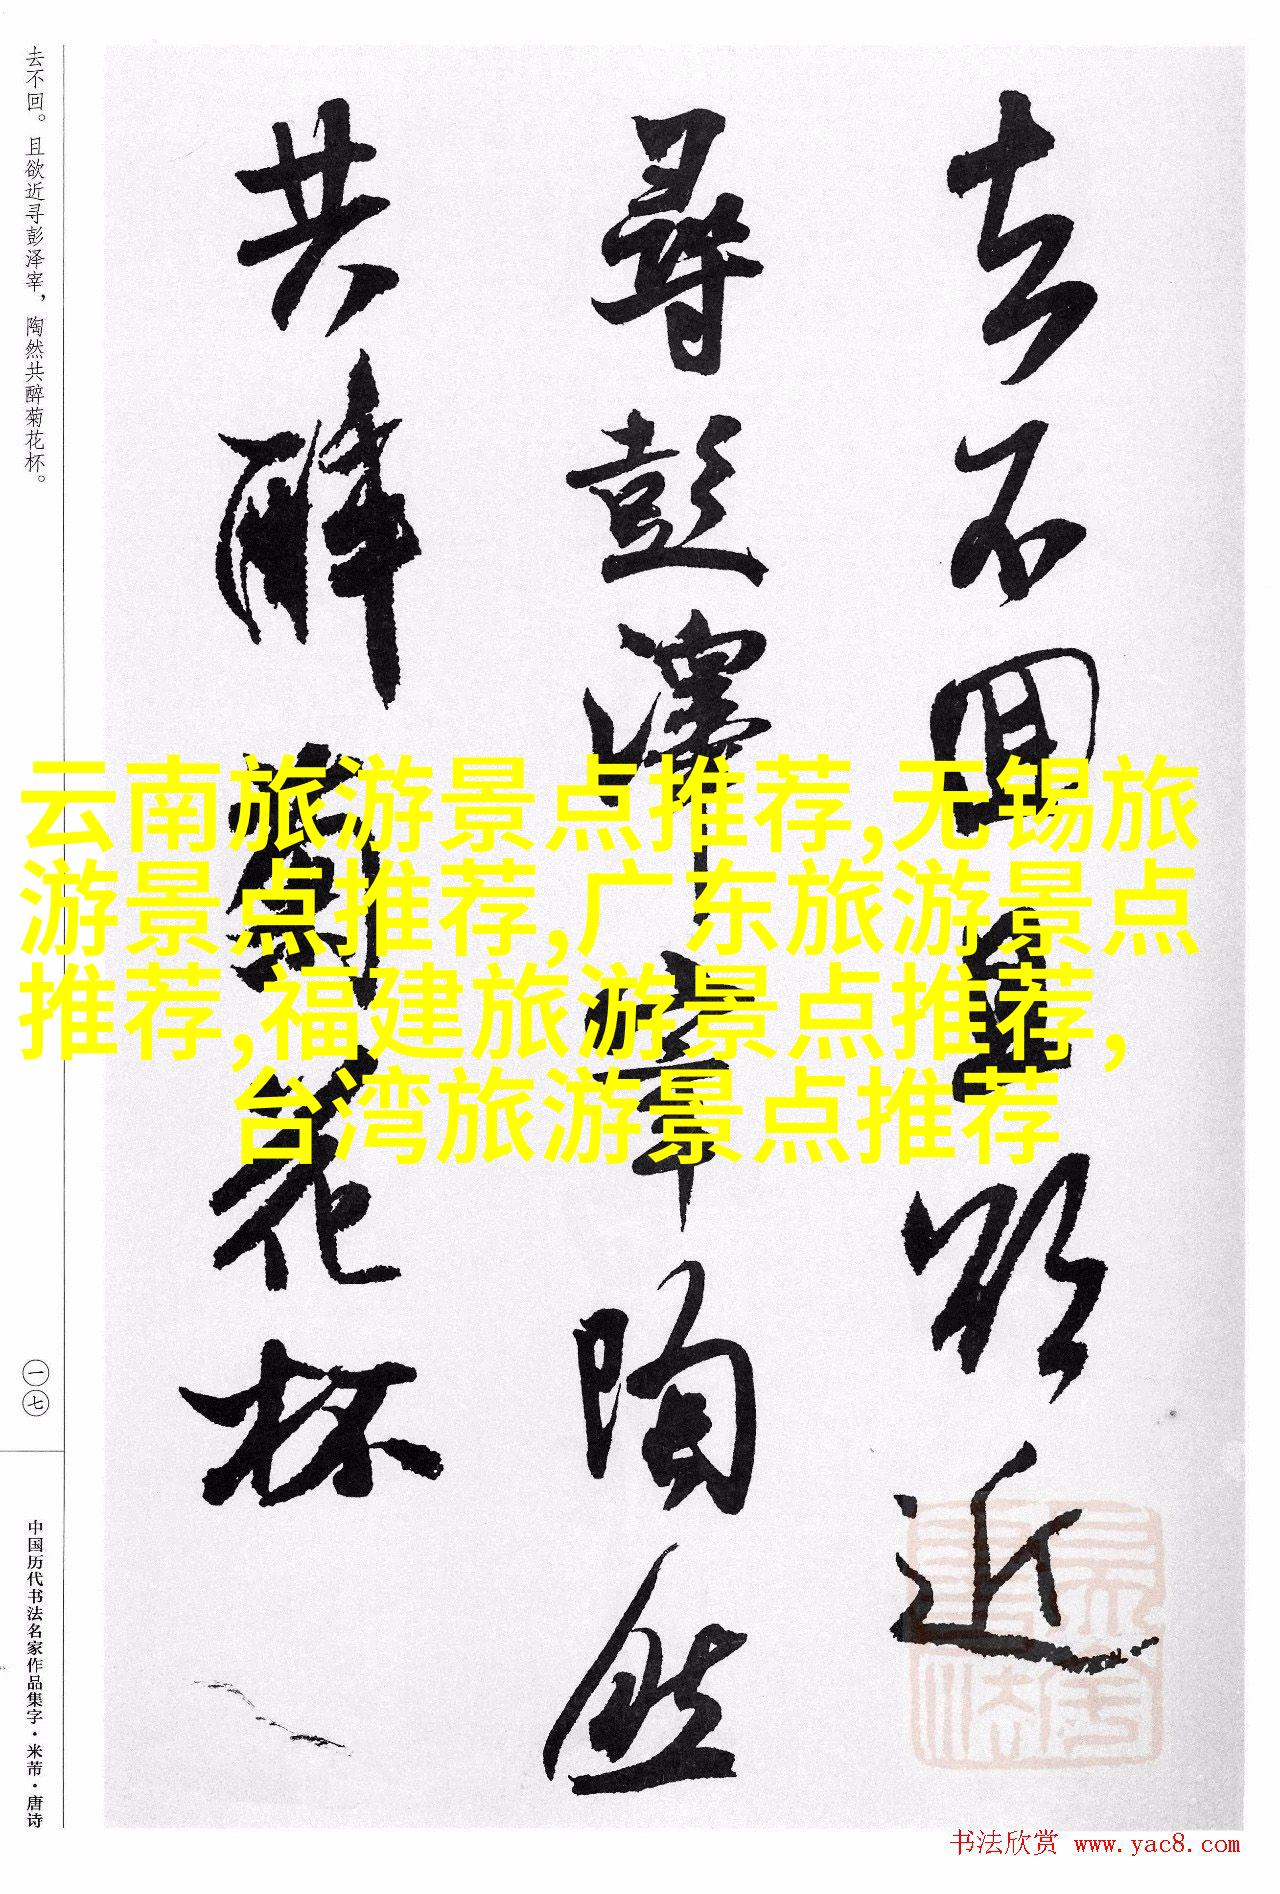 去不回。且欲近寻彭泽宰，陶然共醉菊花杯。
去不回且欲近
尋彭澤宰陶然
共醉菊花杯
云南旅游景点推荐,无锡旅
游景点推荐,广东旅游景点
推荐,福建旅游景点推荐,
台湾旅游景点推荐
一七
中国历代书法名家作品集字·米芾·唐诗
书法欣赏 www.yac8.com